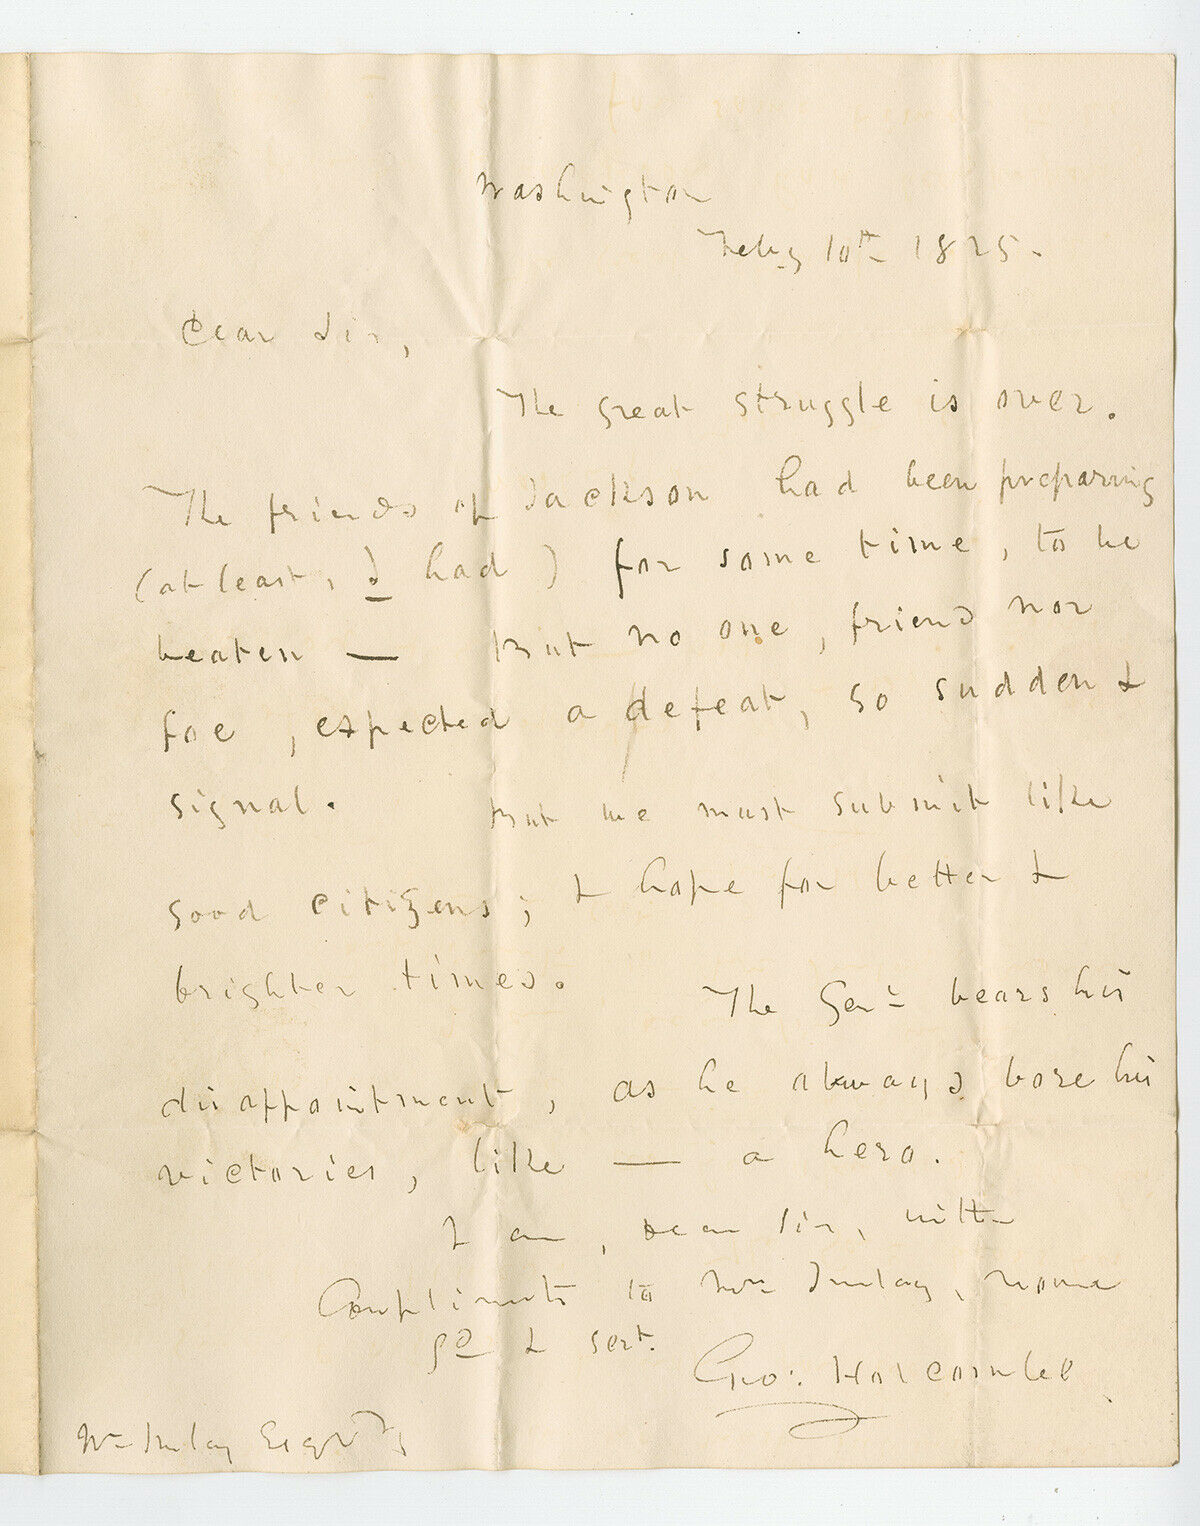 Washington
Feby 10th 1825.
Dear Sir,
The great struggle is over.
The friends of Jackson had been preparing
(at least, I had) for some time, to be
beaten — But no one, friend nor
foe, expected a defeat, so sudden &
signal. But we must submit like
good citizens; & hope for better &
brighter times. The Genl bears his
disappointment, as he always bore his
victories, like — a hero.
I am, dear Sir, with
Compliments to Mrs Imlay, yours
& sert.
Geo: Holcombe
Wm Imlay Esqr